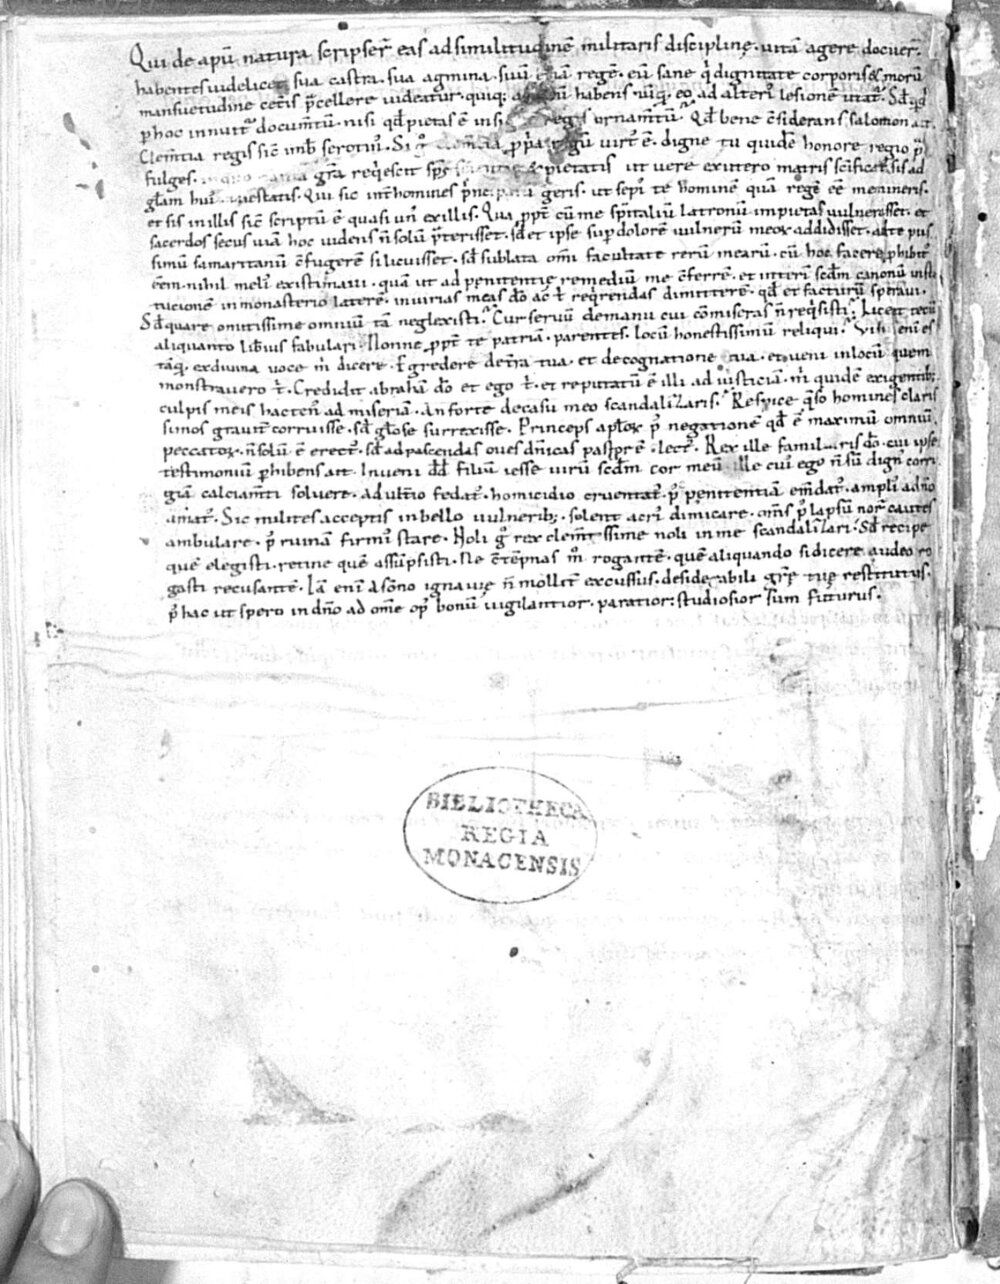 Qui de apiū natura scripser̄ eas ad similitudinē militaris disciplinę · uitā agere docuer̄ ·
habentes uidelicet sua castra · sua agmina · suū regē · eū sane q̇ dignitate corporis & morū
mansuetudine cet̄is p̄cellere uideatur · habens ad alteri᷒ lesionē utat᷒ · Sꝫ
ꝑ hoc innuit᷒ docum̄tū · nisi qđ pietas ē regis ornam̄tū · Qđ bene c̄siderans salomon ait ·
Clem̄tia regis sic̄ imb̄ serotin᷒ · uirt᷒ ē · digne tu quidē honore regio
fulges · grā req̇escit sp̄s pietatis ut uere ex utero matris scīficat᷒ sis ad
gl̄am hui᷒ maiestatis · Qui sic int̄ homines geris · ut sep̄ te hominē quā regē eē memineris ·
et sis in illis sic̄ scriptū ē quasi un᷒ ex illis · Qua ꝓpt̄ cū me sp̄italiū latronū impietas uulnerasset · et
sacerdos secus uiā hoc uidens n̄ solū p̄terisset · sꝫ et ipse sup̄ dolorē uulnerū meoꝝ addidisset · ad te pus
simū samaritanū c̄fugerē si licuisset · sꝫ sublata om̄i facultate rerū mearū · cū hoc facere ꝓhibit᷒
eēm · nihil meli᷒ existimaui · quā ut ad penitentie remediū me c̄ferrē · et int̄eri scđm canonū insti
tucionē in monasterio laterē · iniurias meas dō ac t̄ req̇rendas dimitterē · qđ et facturū sp̄aui ·
Sꝫ quare omitissime omniū tā neglexisti? Cur seruū de manu cui cōmiseras n̄ req̇sisti? Liceat tecū
aliquanto lib̄ius fabulari · Nonne ꝓpt̄ te patriā · parentes · locū honestissimū reliqui? Visi᷒ enī es
tāq̄ · ex diuina uoce m̄ dicere · Egredere de t̄ra tua · et de cognatione tua · et ueni in locū quem
monstrauero t̄ · Credidit abrahā dō et ego t̄ · et reputatū ē illi ad iusticiā · m̄ quidē exigentib;
culpis meis hacten᷒ ad miseriā · An forte de casu meo scandalizaris? Respice q̄so homines claris
simos grauit̄ corruisse · sꝫ gl̄ose surrexisse · Princeps apl̄oꝝ p᷒ negationē qđ ē maximū omniū
peccatoꝝ · n̄ solū ē erect᷒ · sꝫ ad pascendas oues dn̄icas pastor ē · lect᷒ · Rex ille famil..ris dō · cui ipse
testimoniū ꝑhibens ait · Inueni dđ filiū iesse uirū scđm cor meū · ille cui᷒ ego n̄ sū dign᷒ corri
giā calciam̄ti soluere · adult̄io fedat᷒ · homicidio cruentat᷒ · p᷒ penitentiā em̄dat᷒ · ampli᷒ a dn̄o
amat᷒ · Sic milites acceptis in bello uulnerib; · solent acri᷒ dimicare · om̄s p᷒ lapsū nor̄ cauti᷒
ambulare · p᷒ ruinā firmi᷒ stare · Noli g° rex clem̄tissime noli in me scandalizari · Sꝫ recipe
quē elegisti · retine quē assūpsisti · Ne c̄tēpnas m̄ rogantē · quē aliquando si dicere audeo ro
gasti recusantē · Iā enī a sōno ignauię n̄ mollit̄ excussus · desiderabili gr̄ę tuę restitutus ·
p᷒ hac ut spero in dn̄o ad om̄e op᷒ bonū uigilantior · paratior : studiosior sum futurus ·
BIBLIOTHECA
REGIA
MONACENSIS